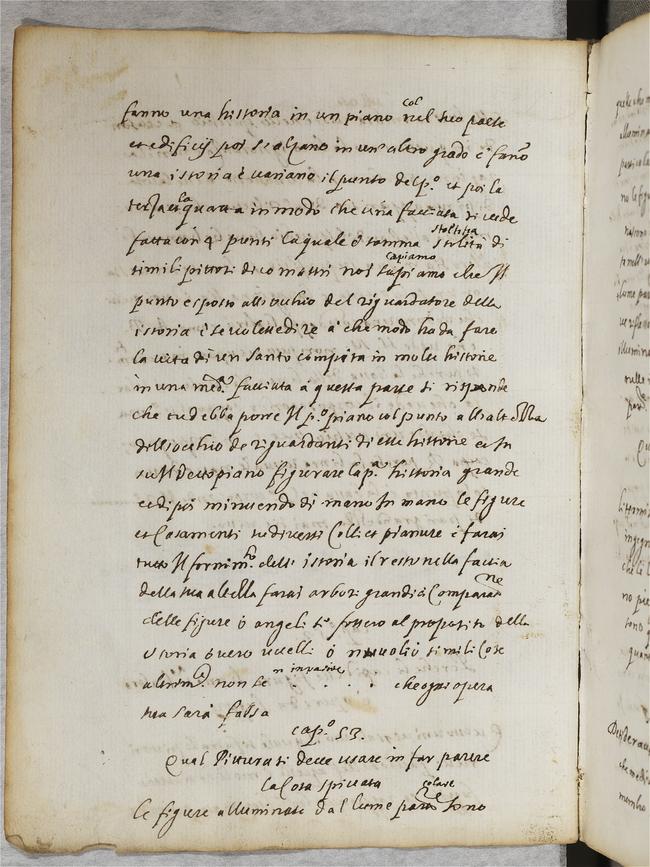 fanno una historia in un piano col nel suo paese
et edificij poi s'alzano in un'altro grado e fano
una istoria e variano il punto del p.º et poi la
terza et la quarta in modo che una facciata si vede
fatta con 4 punti la quale è somma stoltitia stolità di
simili pittori dico mastri noi sapiamo capiamo che Il
punto è posto all'occhio del riguardatore della
istoria e se volete dire a che modo ho da fare
la vita di un santo compita in molte historie
in una med.ª facciata a questa parte si risponde
che tu debba porre Il p.º piano col punto all'altezza
dell'occhio de riguardanti di esse historie et In
su Il detto piano figurare la p.ª historia grande
et di poi minuendo di mano In mano le figure
et Casamenti su diversi Colli et pianure e farai
tutto Il fornim.to dell' istoria il resto nella faccia
della sua altezza farai arbori grandi a Comparatione
delle figure ò angeli se fossero al proposito della
istoria overo uccelli ò nuvoli ò simili Cose
altrim.ti non te n'invasire . . . . che ogni opera
tua sarà falsa
cap.º 53.
Qual Pittura si deve usare in far parere
la Cosa spiccata
le figure alluminate dal lume colare sono